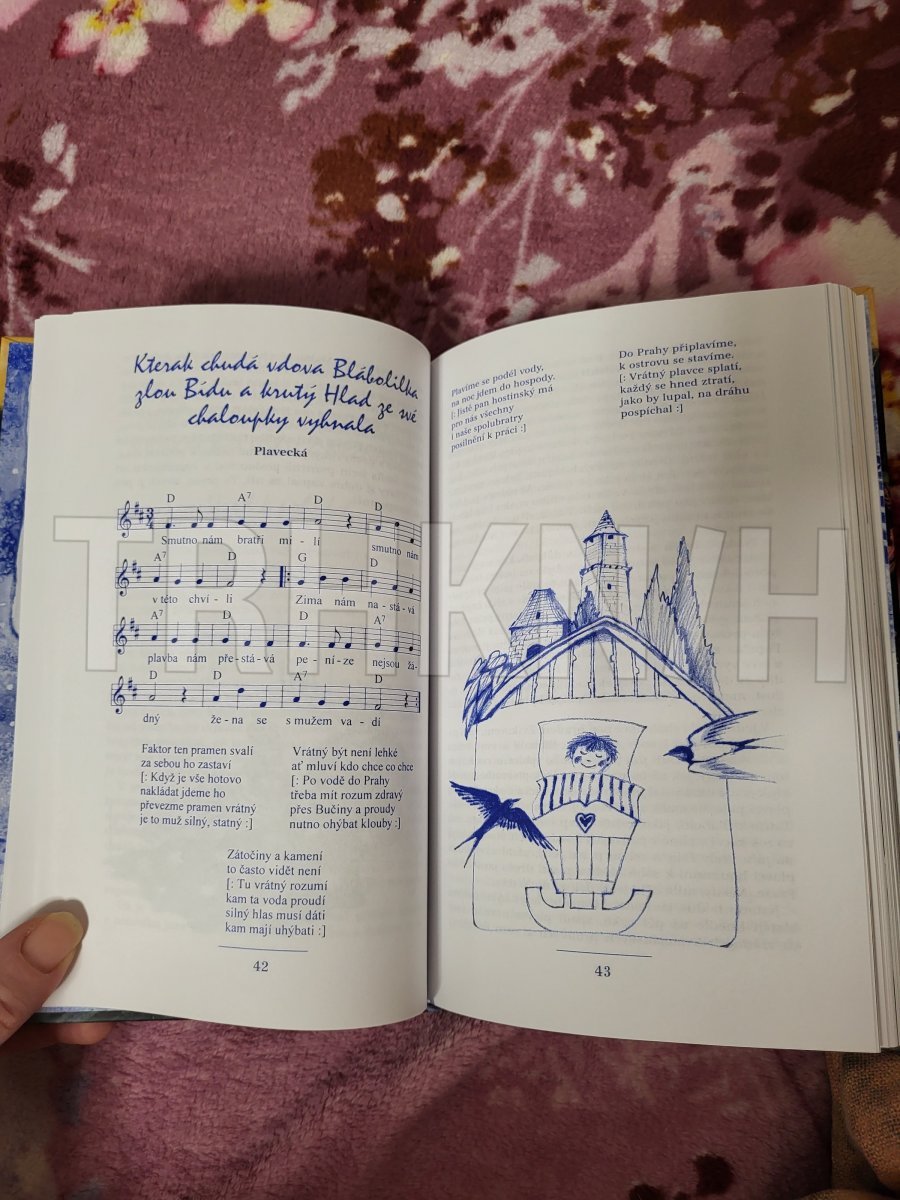 Kterak chudá vdova Blábolilka
zlou Bídu a krutý Hlad ze své
chaloupky vyhnala
Plavecká
D A7 D D
Smutno nám bratři mi - lí smutno nám
A7 D G D
v této chví - li Zima nám na - stá - vá
A7 D D A7
plavba nám pře - stá - vá pe - ní - ze nejsou žá -
D D A7 D
dný že - na se s mužem va - dí
Faktor ten pramen svalí
za sebou ho zastaví
[: Když je vše hotovo
nakládat jdeme ho
převezme pramen vrátný
je to muž silný, statný :]
Vrátný být není lehké
ať mluví kdo chce co chce
[: Po vodě do Prahy
třeba mít rozum zdravý
přes Bučiny a proudy
nutno ohýbat klouby :]
Zátočiny a kamení
to často vidět není
[: Tu vrátný rozumí
kam ta voda proudí
silný hlas musí dáti
kam mají uhýbati :]
42
Plavíme se podél vody,
na noc jdem do hospody.
[: Jistě pan hostinský má
pro nás všechny
i naše spolubratry
posilnění k práci :]
Do Prahy připlavíme,
k ostrovu se stavíme.
[: Vrátný plavce splatí,
každý se hned ztratí,
jako by lupal, na dráhu
pospíchal :]
43